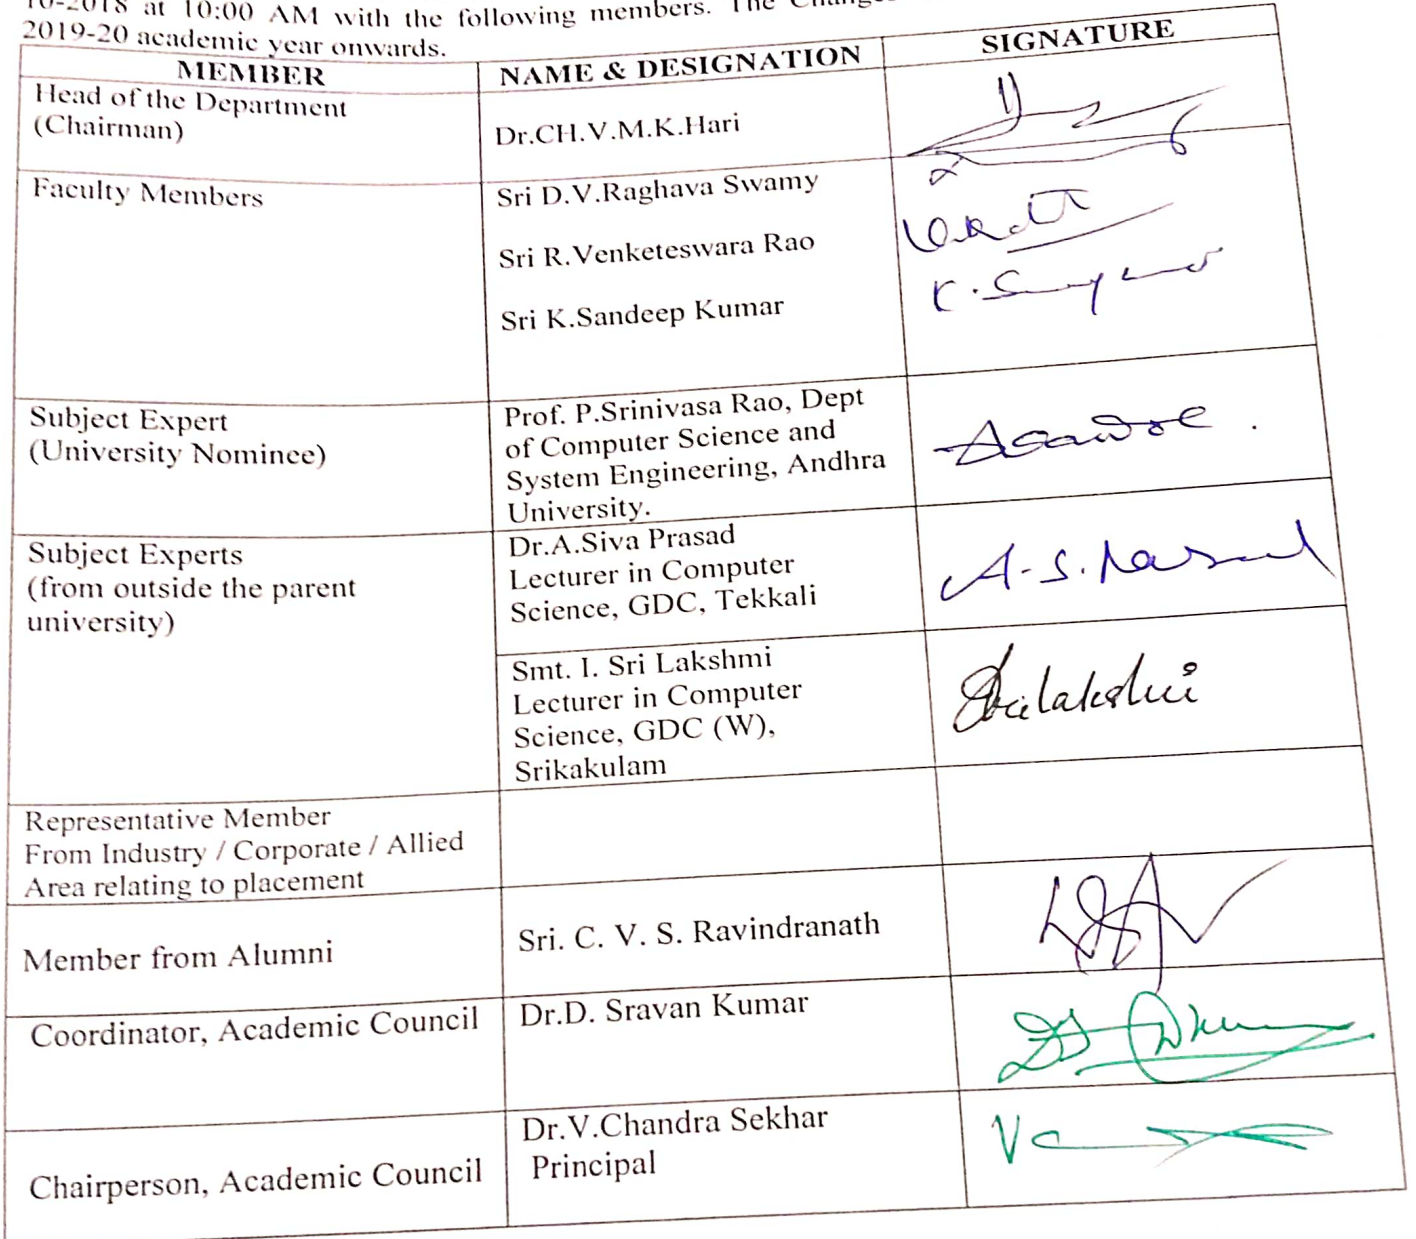 10-2018 at 10:00 AM with the following members. The Changes
2019-20 academic year onwards.
MEMBER NAME & DESIGNATION SIGNATURE
Head of the Department
(Chairman)
Dr.CH.V.M.K.Hari
Faculty Members
Sri D.V.Raghava Swamy
Sri R.Venketeswara Rao
Sri K.Sandeep Kumar
Subject Expert
(University Nominee)
Prof. P.Srinivasa Rao, Dept
of Computer Science and
System Engineering, Andhra
University.
Subject Experts
(from outside the parent
university)
Dr.A.Siva Prasad
Lecturer in Computer
Science, GDC, Tekkali
A.S.Prasad
Smt. I. Sri Lakshmi
Lecturer in Computer
Science, GDC (W),
Srikakulam
Srilakshmi
Representative Member
From Industry / Corporate / Allied
Area relating to placement
Member from Alumni
Sri. C. V. S. Ravindranath
Coordinator, Academic Council
Dr.D. Sravan Kumar
Chairperson, Academic Council
Dr.V.Chandra Sekhar
Principal